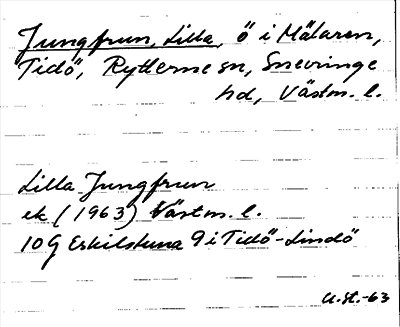 Jungfrun, Lilla, ö i Mälaren,
Tidö, Rytterne sn, Snevringe
hd, Västm. l.
Lilla Jungfrun
ek (1963) Västm. l.
10G Eskilstuna 9i Tidö-Lindö
U.St.-63